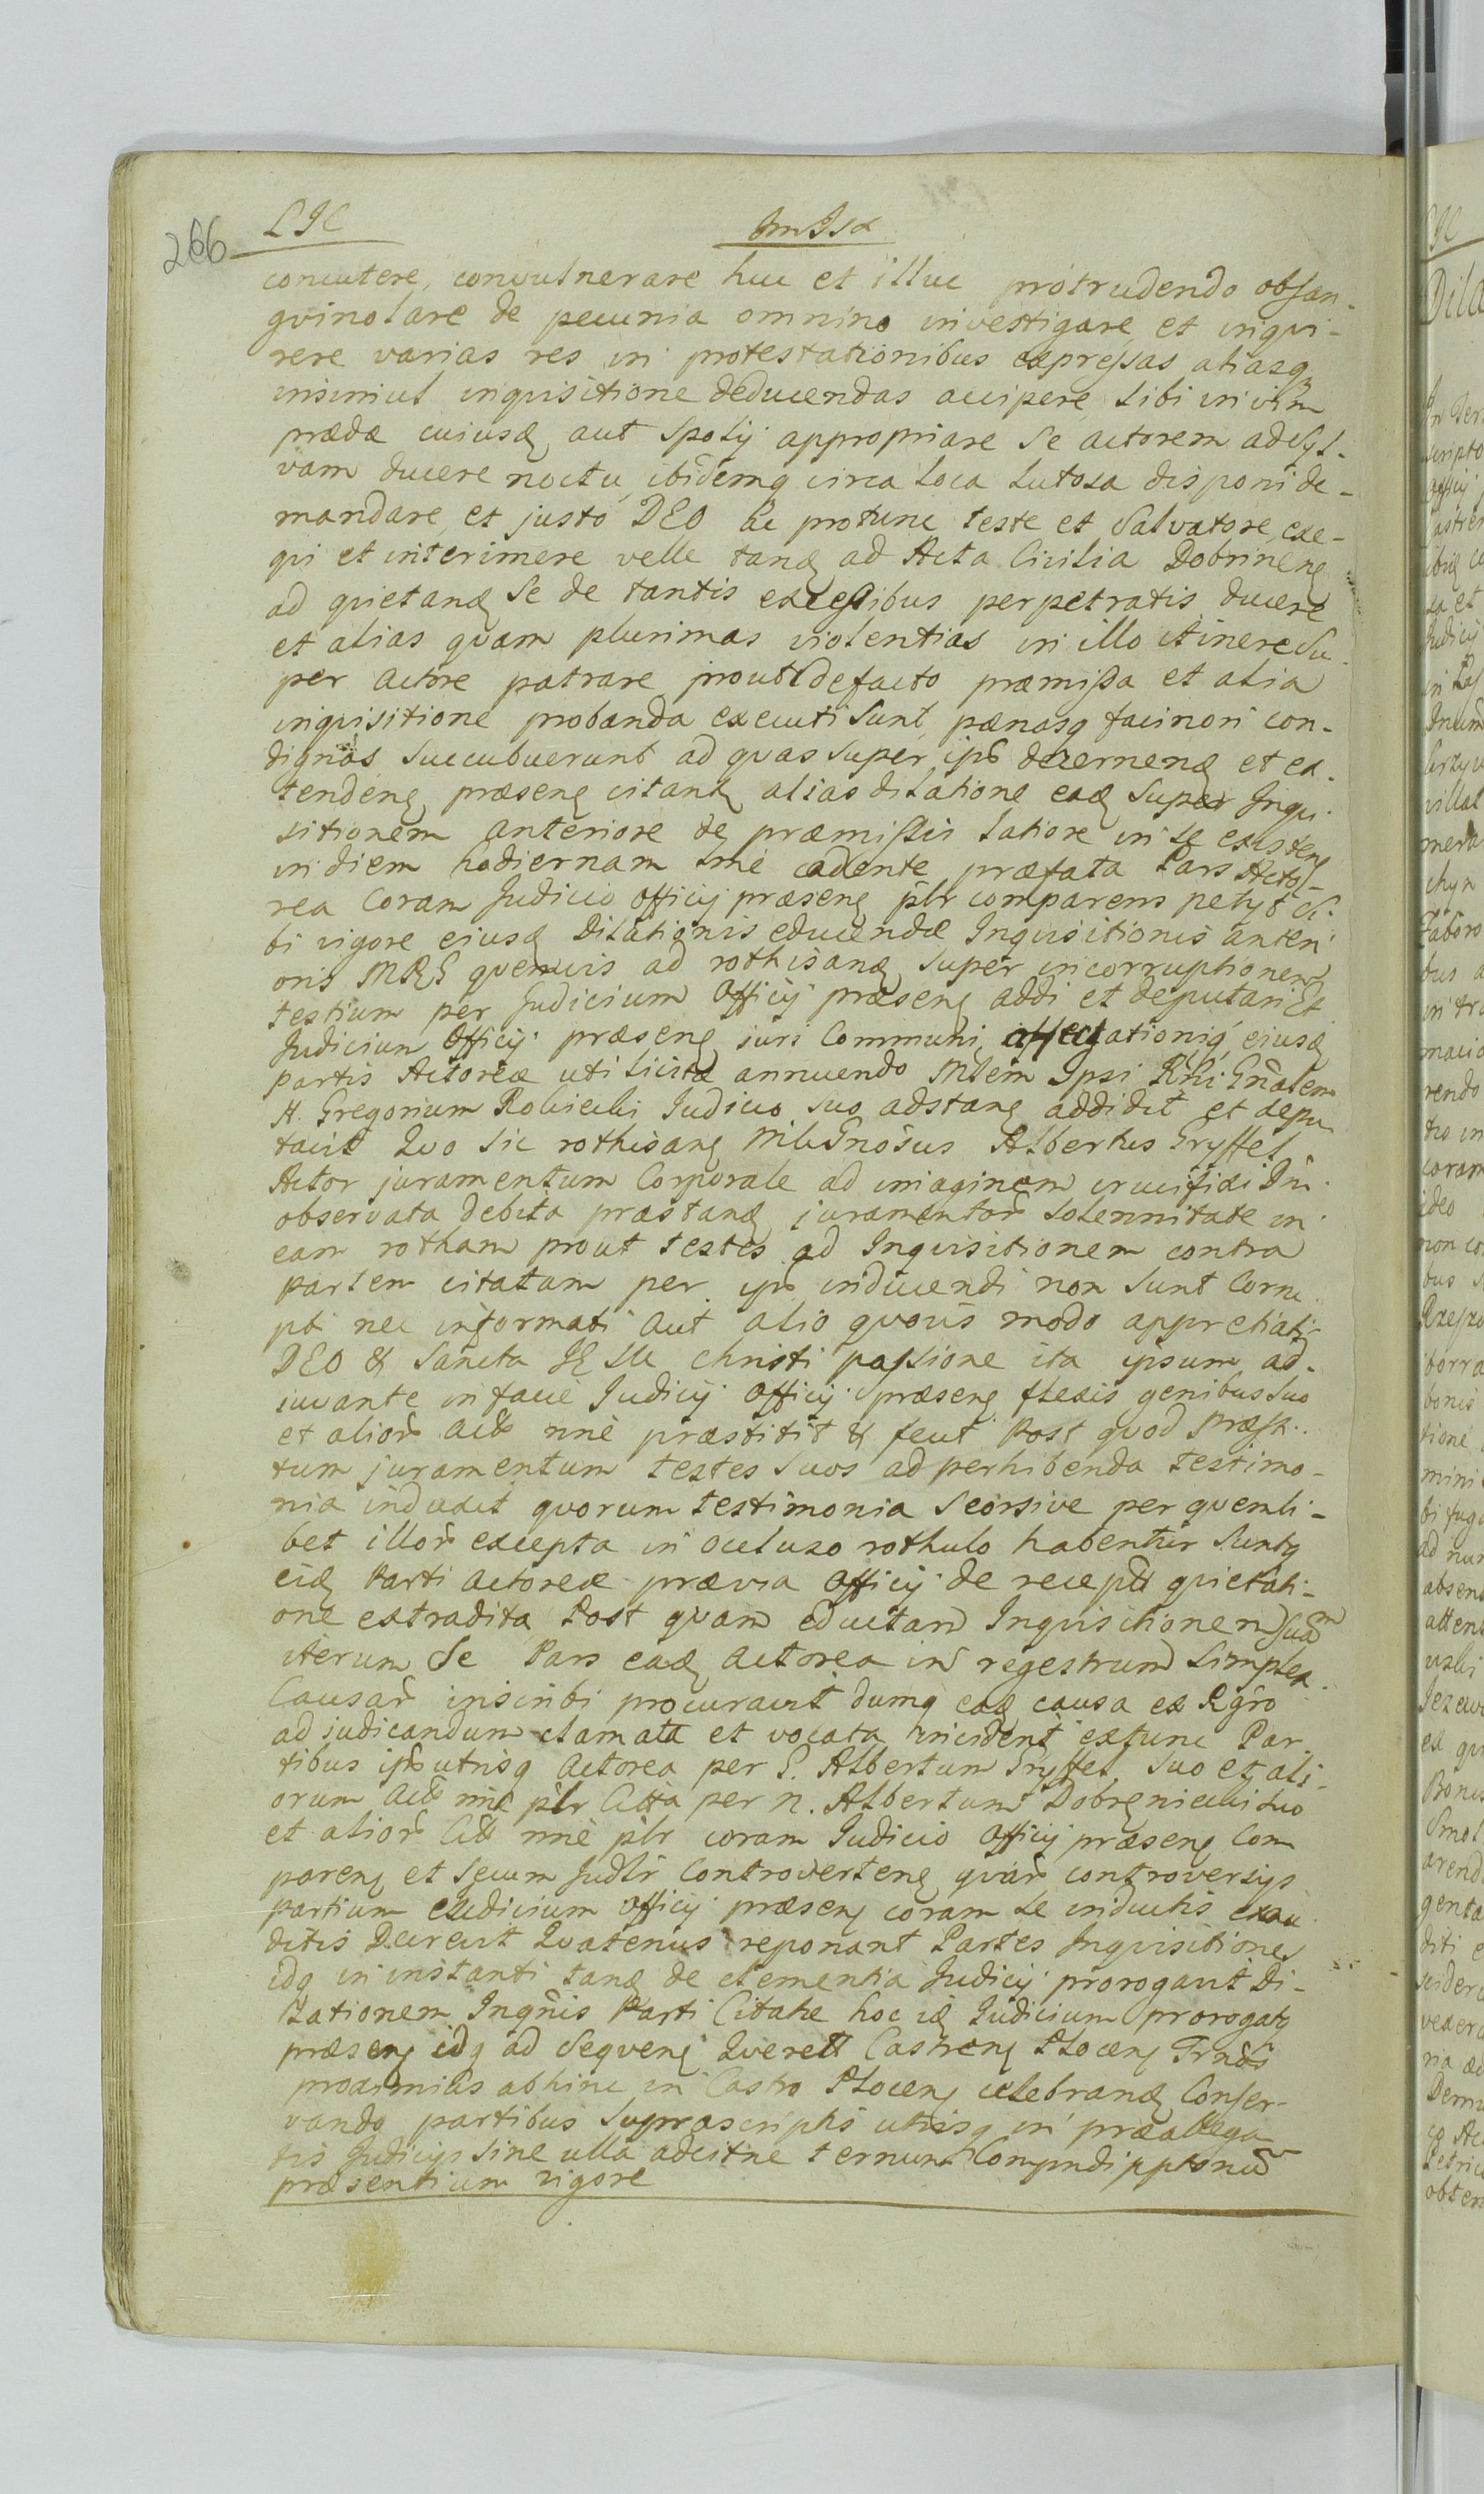 266
concutere, convulnerare huc et illuc protrudendo obsan-
gvinolare de pecunia omnino investigare et inqvi-
rere varias res in protestationibus expressas aliasq
insimul inqvisitione deducendas accipere sibi in vim
prædæ cuiusq aut Spolij appropriare Se actorem ad Syl-
vam ducere noctu, ibidemq circa loca lutosa disponi de-
mandare et justo DEO pro tunc teste et Salvatore, exe-
qvi et interimere velle tanq ad Acta Civilia Dobrineng
ad qvietanq Se de tantis excessibus perpetratis ducere
et alias qvam plurimas violentias in illo itinere Su-
per actore patrare prout defacto præmissa et alia
inqvisitione probanda executi Sunt, pænasq facinori con-
dignas Succubuerunt ad qvas Super ips decernenq et ex-
tendeng præseng citang alias dilatione eaq Super Inqvi-
sitionem anteriore de præmissis latiore in se existeng
in diem hodiernam cadente præfata Pars Acto-
rea Coram Judicio Officij præseng plr comparens petijt Si-
bi vigore eiusq Dilationis educendæ Inqvisitionis anteri
oris qvemvis ad rothisanq Super incorruptionem
testium per Judicium Officij præseng addi et deputari Et
Judicium Officij præseng juri Communi affectationiq eiusq
partis Actoreæ uti licitæ annuendo Mlem Ipsi
H. Gregorium Judicio Suo adstang addidit et depu
tavit Qvo Sic rothisang Albertus Gryffel
Actor juramentum Corporale ad imaginem crucifixi Dni
observata debita præstanq juramentor Solennitate in
eam rotham prout testes ad Inqvisitionem contra
partem citatam per ips inducendi non Sunt Corru
pti nec informati aut alio qvovis modo appretiati
DEO & Sancta JESU Christi passione ita ipsum ad-
iuvante in facie Judicij Officij præseng flexis genibus Suo
et alior act nnē præstitit & fecit Post qvod præsti-
tum juramentum testes Suos ad perhibenda testimo-
nia induxit qvorum testimonia Seorsive per qvemli-
bet illor excepta in occluso rothulo habentur Suntq
eiq Parti Actoreæ prævia Officij de recept qvietati-
one extradita Post qvam eductam Inqvisitionem Suam
iterum Se Pars eaq Actorea in regestrum Simplex
Causar inscribi procuravit dumq eaq causa ex Rgro
ad judicandum clamata et vocata incident extunc Par-
tibus ips utrisq Actorea per G. Albertum Gryffel Suo et ali-
orum act nnē plr Citta per N. Albertum Dobrzniecki Suo
et alior Citt nnē plr coram Judicio Officij præseng Com
pareng et Secum Judlr Controverteng qvar controversys
Partium Judicium Officij præseng coram Se inductis exau
ditis Decrevit Qvatenus reponant Partes Inqvisitiones
idq in instanti tanq de clementia Judicij prorogavit Di-
lationem Inqnis Parti Citatæ hoc iq Judicium prorogatq
præseng idq ad Seqveng Qverell Castreng Ploceng Trnos
proximius abhinc in Castro Ploceng celebranq Conser-
vando partibus Suprascriptis utrisq in præallega
tis Judicijs Sine ulla adcitne ternum
præsentium vigore